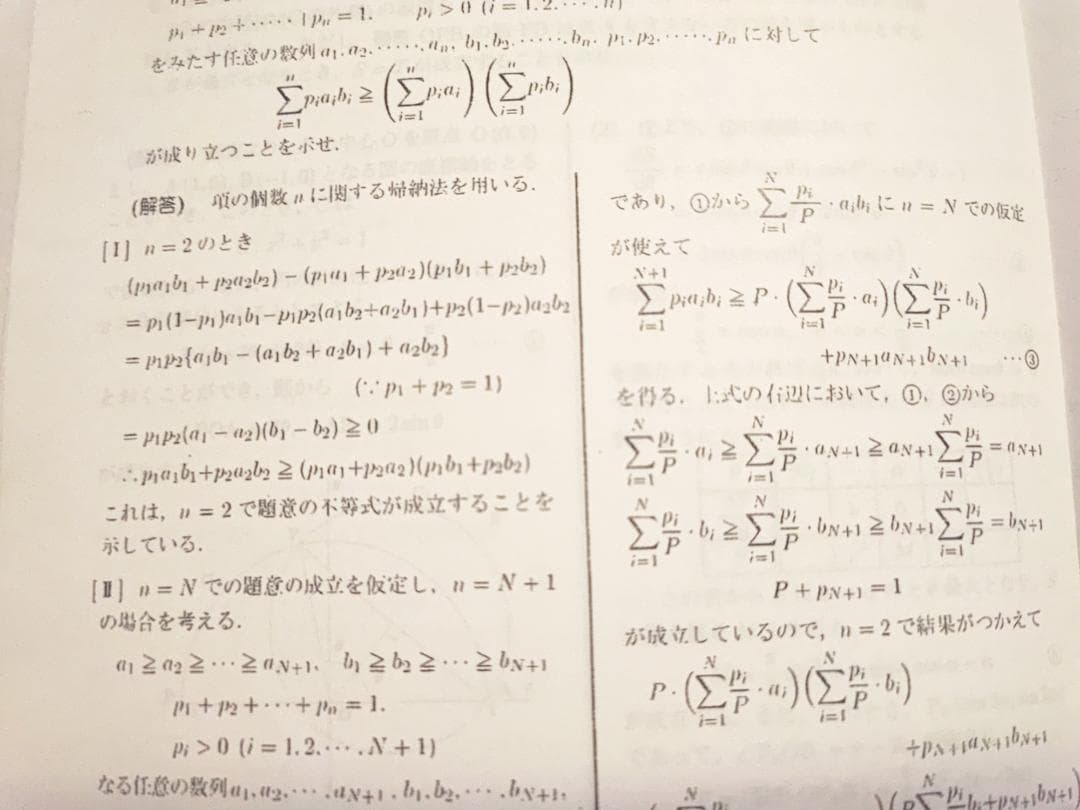 p₁+p₂+‥‥‥+pₙ=1. pᵢ>0 (i=1.2.‥‥.n)
をみたす任意の数列a₁.a₂.‥‥‥.aₙ, b₁.b₂.‥‥‥.bₙ, p₁.p₂.‥‥‥.pₙに対して
∑_{i=1}^{n} pᵢaᵢbᵢ ≧ (∑_{i=1}^{n} pᵢaᵢ)(∑_{i=1}^{n} pᵢbᵢ)
が成り立つことを示せ.
(解答) 項の個数nに関する帰納法を用いる.
[Ⅰ] n=2のとき
(p₁a₁b₁+p₂a₂b₂)-(p₁a₁+p₂a₂)(p₁b₁+p₂b₂)
=p₁(1-p₁)a₁b₁-p₁p₂(a₁b₂+a₂b₁)+p₂(1-p₂)a₂b₂
=p₁p₂{a₁b₁-(a₁b₂+a₂b₁)+a₂b₂}
(∵p₁+p₂=1)
=p₁p₂(a₁-a₂)(b₁-b₂)≧0
∴p₁a₁b₁+p₂a₂b₂≧(p₁a₁+p₂a₂)(p₁b₁+p₂b₂)
これは, n=2で題意の不等式が成立することを
示している.
[Ⅱ] n=Nでの題意の成立を仮定し, n=N+1
の場合を考える.
a₁≧a₂≧…≧a_{N+1}, b₁≧b₂≧…≧b_{N+1}
p₁+p₂+…+pₙ=1.
pᵢ>0 (i=1.2.….N+1)
なる任意の数列a₁.a₂.….a_{N+1}, b₁.b₂.….b_{N+1},
であり, ①から ∑_{i=1}^{N} pᵢ/P・aᵢbᵢ に n=N での仮定
が使えて
∑_{i=1}^{N+1} pᵢaᵢbᵢ ≧ P・(∑_{i=1}^{N} pᵢ/P・aᵢ)(∑_{i=1}^{N} pᵢ/P・bᵢ)
+p_{N+1}a_{N+1}b_{N+1} …③
を得る. 上式の右辺において, ①, ②から
∑_{i=1}^{N} pᵢ/P・aᵢ ≧ ∑_{i=1}^{N} pᵢ/P・a_{N+1} ≧ a_{N+1}∑_{i=1}^{N} pᵢ/P = a_{N+1}
∑_{i=1}^{N} pᵢ/P・bᵢ ≧ ∑_{i=1}^{N} pᵢ/P・b_{N+1} ≧ b_{N+1}∑_{i=1}^{N} pᵢ/P = b_{N+1}
P+p_{N+1}=1
が成立しているので, n=2で結果がつかえて
P・(∑_{i=1}^{N} pᵢ/P・aᵢ)(∑_{i=1}^{N} pᵢ/P・bᵢ)
+p_{N+1}a_{N+1}b_{N+1}